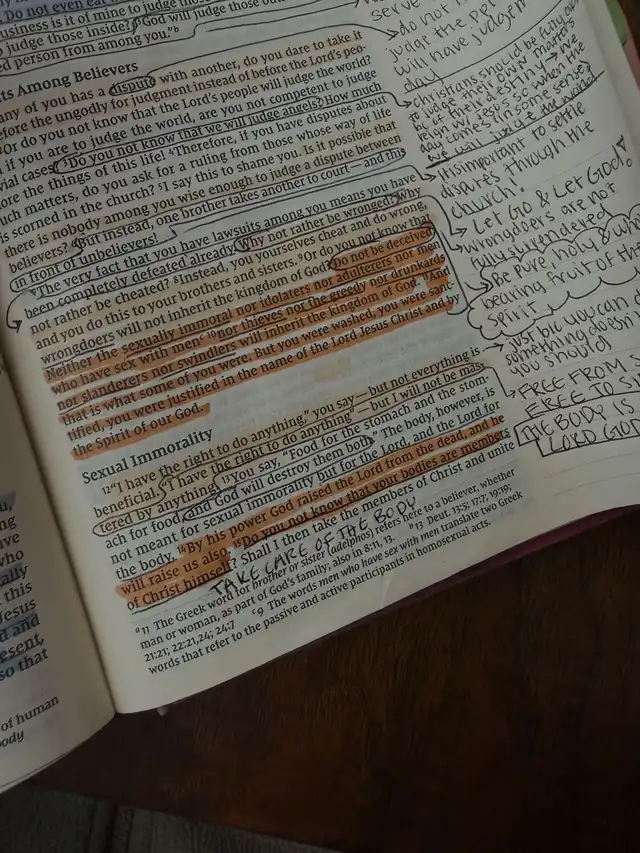 Do not even eat
business is it of mine to judge those
to judge those inside? God will judge those
ed person from among you."b
ts Among Believers
any of you has a dispute with another, do you dare to take it
efore the ungodly for judgment instead of before the Lord's peo-
or do you not know that the Lord's people will judge the world?
if you are to judge the world, are you not competent to judge
vial cases? 3Do you not know that we will judge angels? How much
ore the things of this life! 4Therefore, if you have disputes about
uch matters, do you ask for a ruling from those whose way of life
is scorned in the church? 5I say this to shame you. Is it possible that
there is nobody among you wise enough to judge a dispute between
believers? 6But instead, one brother takes another to court—and this
in front of unbelievers!
7The very fact that you have lawsuits among you means you have
been completely defeated already. Why not rather be wronged? Why
not rather be cheated? 8Instead, you yourselves cheat and do wrong,
and you do this to your brothers and sisters. 9Or do you not know that
wrongdoers will not inherit the kingdom of God? Do not be deceived:
Neither the sexually immoral nor idolaters nor adulterers nor men
who have sex with menc 10nor thieves nor the greedy nor drunkards
nor slanderers nor swindlers will inherit the kingdom of God. 11And
that is what some of you were. But you were washed, you were sanc-
tified, you were justified in the name of the Lord Jesus Christ and by
the Spirit of our God.
Sexual Immorality
12"I have the right to do anything," you say—but not everything is
beneficial. "I have the right to do anything"—but I will not be mas-
tered by anything. 13You say, "Food for the stomach and the stom-
ach for food, and God will destroy them both." The body, however, is
not meant for sexual immorality but for the Lord, and the Lord for
the body. 14By his power God raised the Lord from the dead, and he
will raise us also. 15Do you not know that your bodies are members
of Christ himself? Shall I then take the members of Christ and unite
TAKE CARE OF THE BODY
a 11 The Greek word for brother or sister (adelphos) refers here to a believer, whether
man or woman, as part of God's family; also in 8:11, 13. b 13 Deut. 13:5; 17:7; 19:19;
21:21; 22:21,24; 24:7 c 9 The words men who have sex with men translate two Greek
words that refer to the passive and active participants in homosexual acts.
serve
do not
judge the ppl
will have judgem
day
Christians should be fully able
to judge their own matters
bc of their destiny → we
reign w/ Jesus so when the
day comes (in some sense)
we will judge the world
It is important to settle
disputes through the
church!
Let Go & Let God!
wrongdoers are not
fully surrendered
Be pure, holy &
bearing fruit of the
spirit
just bic you can
something doesn
you should
FREE FROM
FREE TO
THE BODY IS
LORD GOD
who
this
Jesus
and
esent,
so that
of human
ody